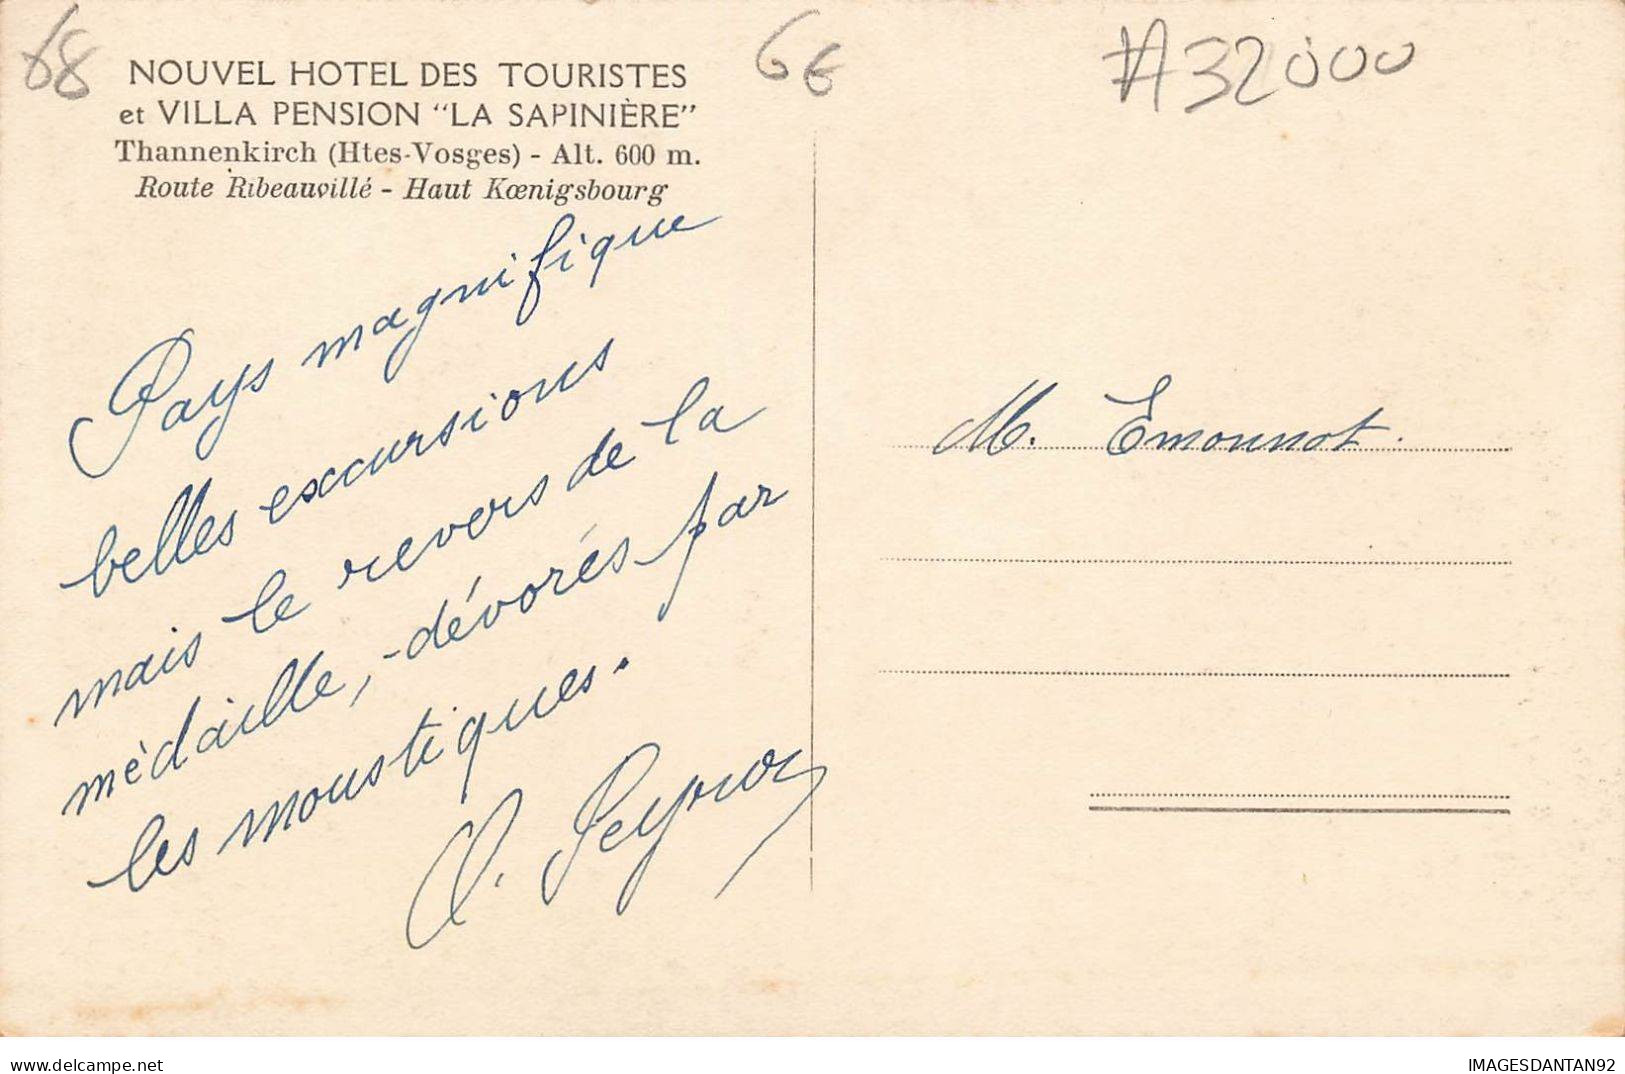 68
NOUVEL HOTEL DES TOURISTES
et VILLA PENSION "LA SAPINIÈRE"
Thannenkirch (Htes-Vosges) - Alt. 600 m.
Route Ribeauvillé - Haut Kœnigsbourg
6€
A32000
Pays magnifique
belles excursions
mais le revers de la
médaille, - dévorés par
les moustiques.
M. Emonnot.
delcampe.net
IMAGESDANTAN92